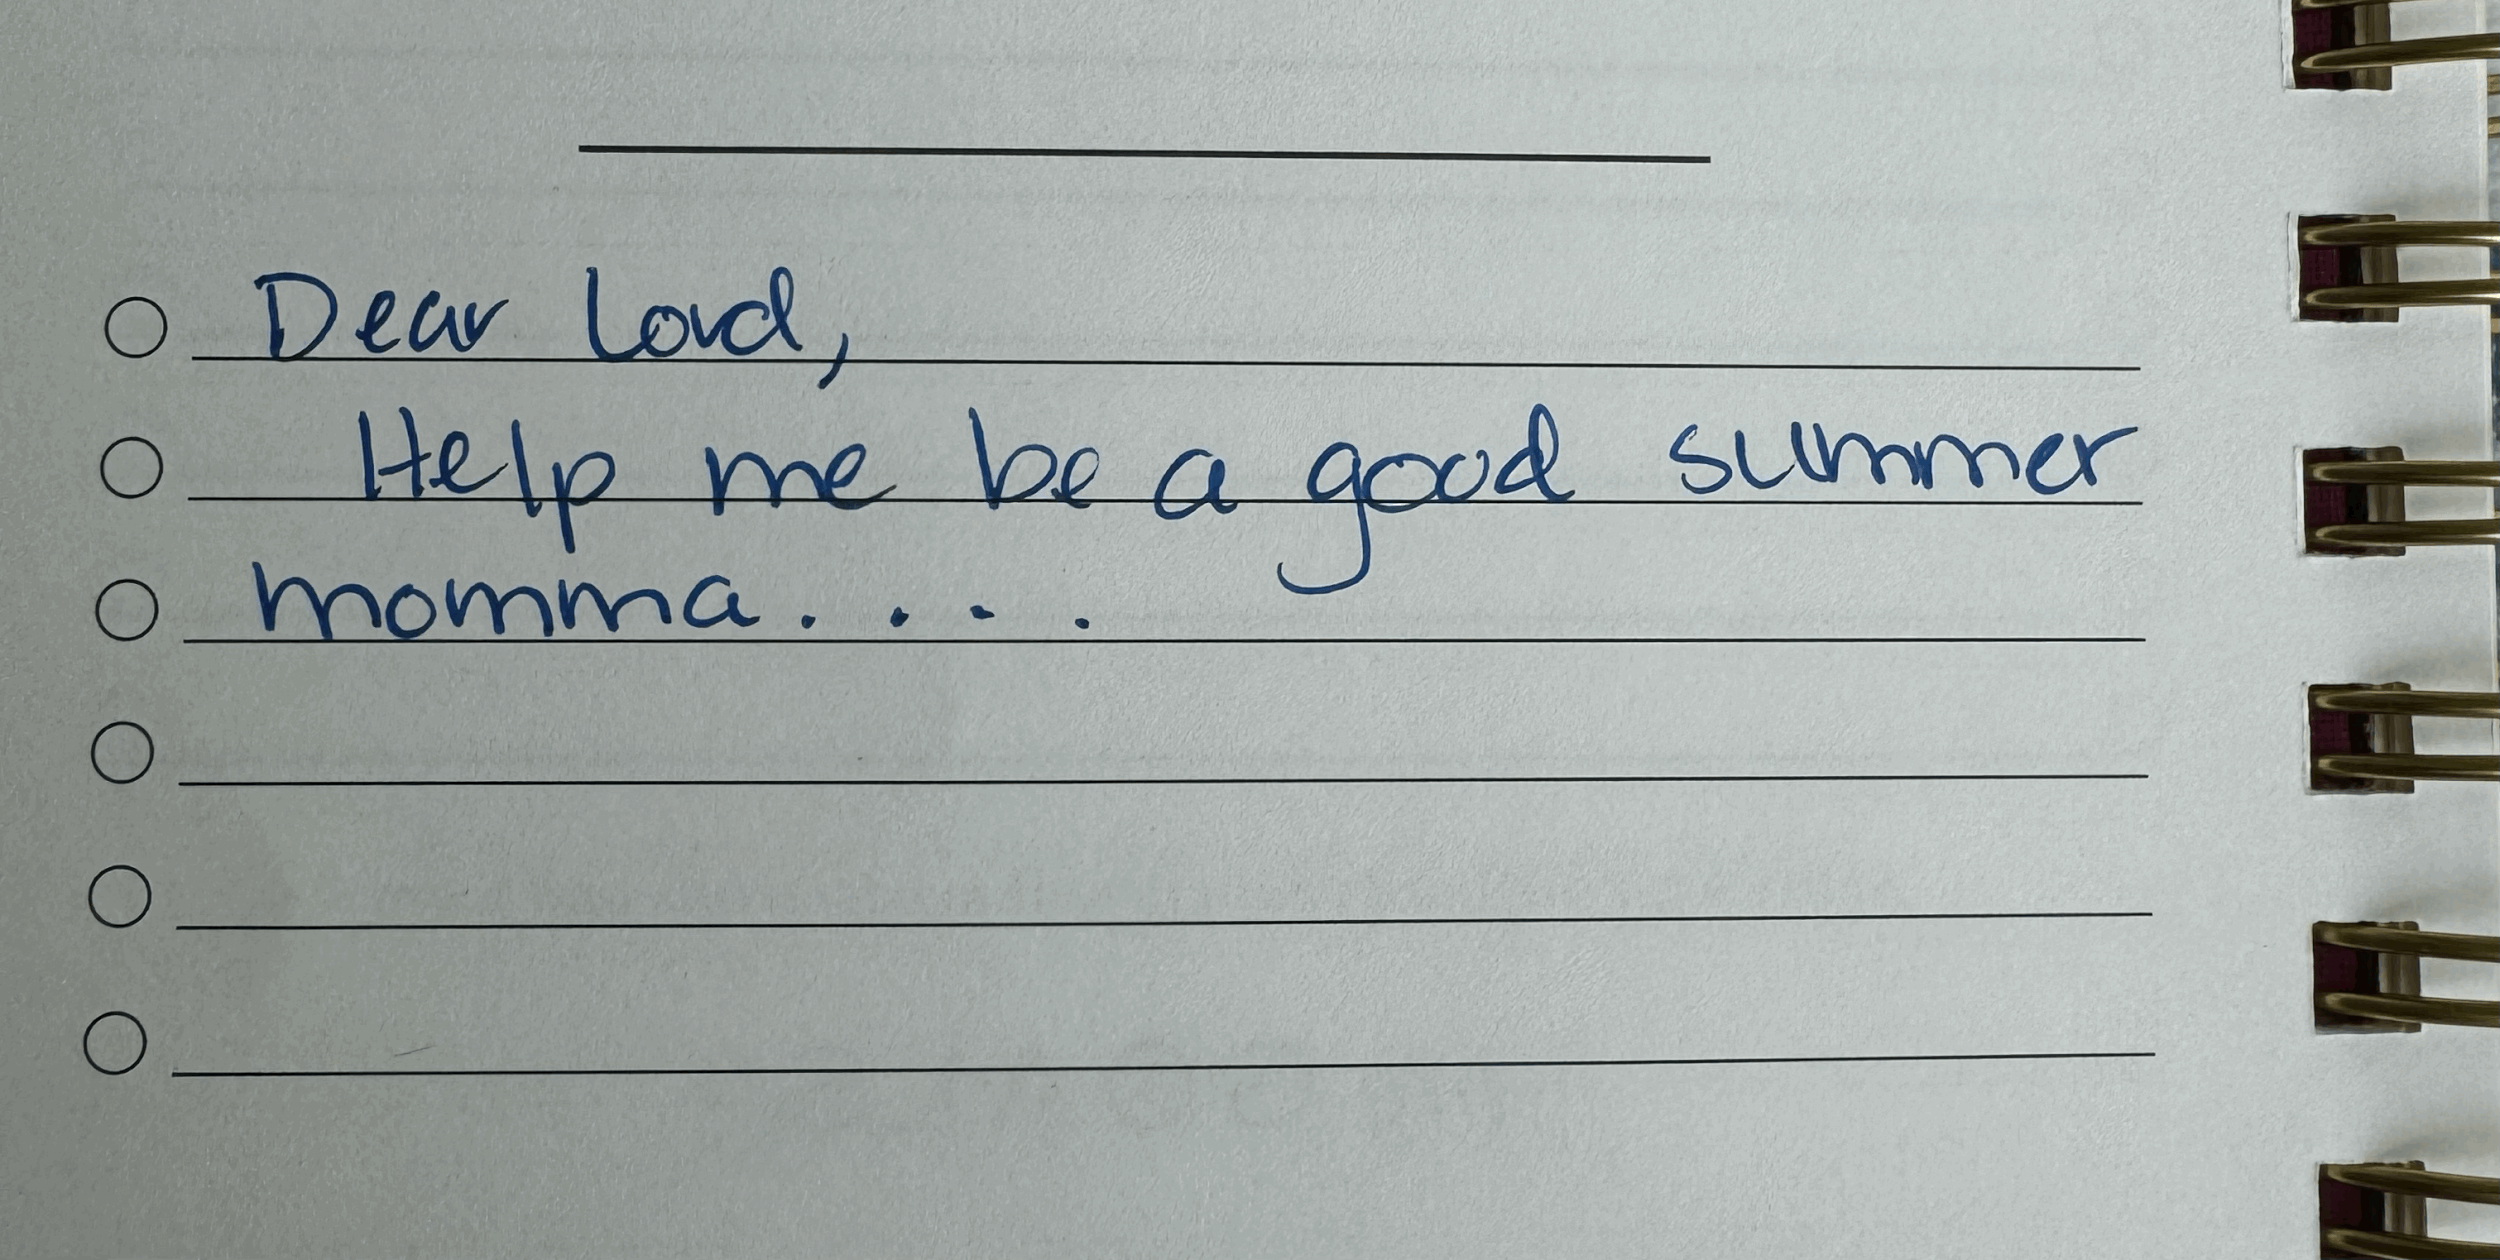 Dear Lord,
Help me be a good summer
momma....